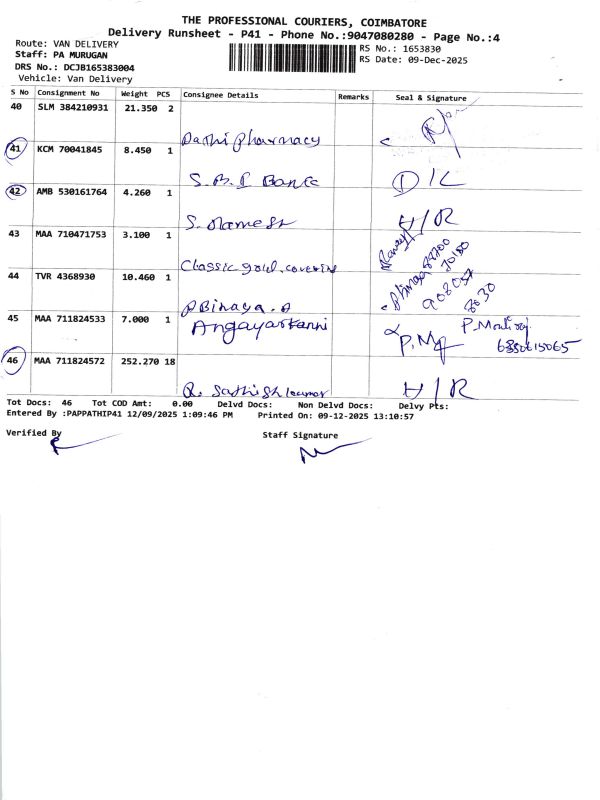 THE PROFESSIONAL COURIERS, COIMBATORE
Delivery Runsheet - P41 - Phone No.:9047080280 - Page No.:4
Route: VAN DELIVERY
Staff: PA MURUGAN
DRS No.: DCJB165383004
Vehicle: Van Delivery
RS No.: 1653830
RS Date: 09-Dec-2025
S No Consignment No Weight PCS Consignee Details Remarks Seal & Signature
40 SLM 384210931 21.350 2
Pharmacy
41 KCM 70041845 8.450 1
S.B.I Bank
42 AMB 530161764 4.260 1
S. Ramesh H/R
43 MAA 710471753 3.100 1
Classic gold covering
44 TVR 4368930 10.460 1
45 MAA 711824533 7.000 1
Angayarkanni
46 MAA 711824572 252.270 18
R. Sathishkumar H/R
Tot Docs: 46 Tot COD Amt: 0.00 Delvd Docs: Non Delvd Docs: Delvy Pts:
Entered By :PAPPATHIP41 12/09/2025 1:09:46 PM Printed On: 09-12-2025 13:10:57
Verified By Staff Signature